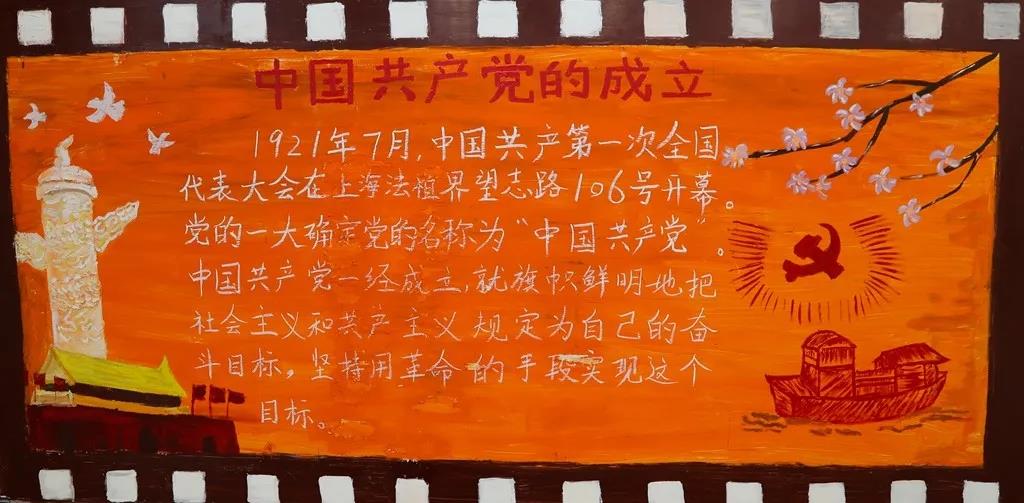 中国共产党的成立
1921年7月,中国共产第一次全国
代表大会在上海法租界望志路106号开幕。
党的一大确定党的名称为“中国共产党”。
中国共产党一经成立,就旗帜鲜明地把
社会主义和共产主义规定为自己的奋
斗目标,坚持用革命的手段实现这个
目标。